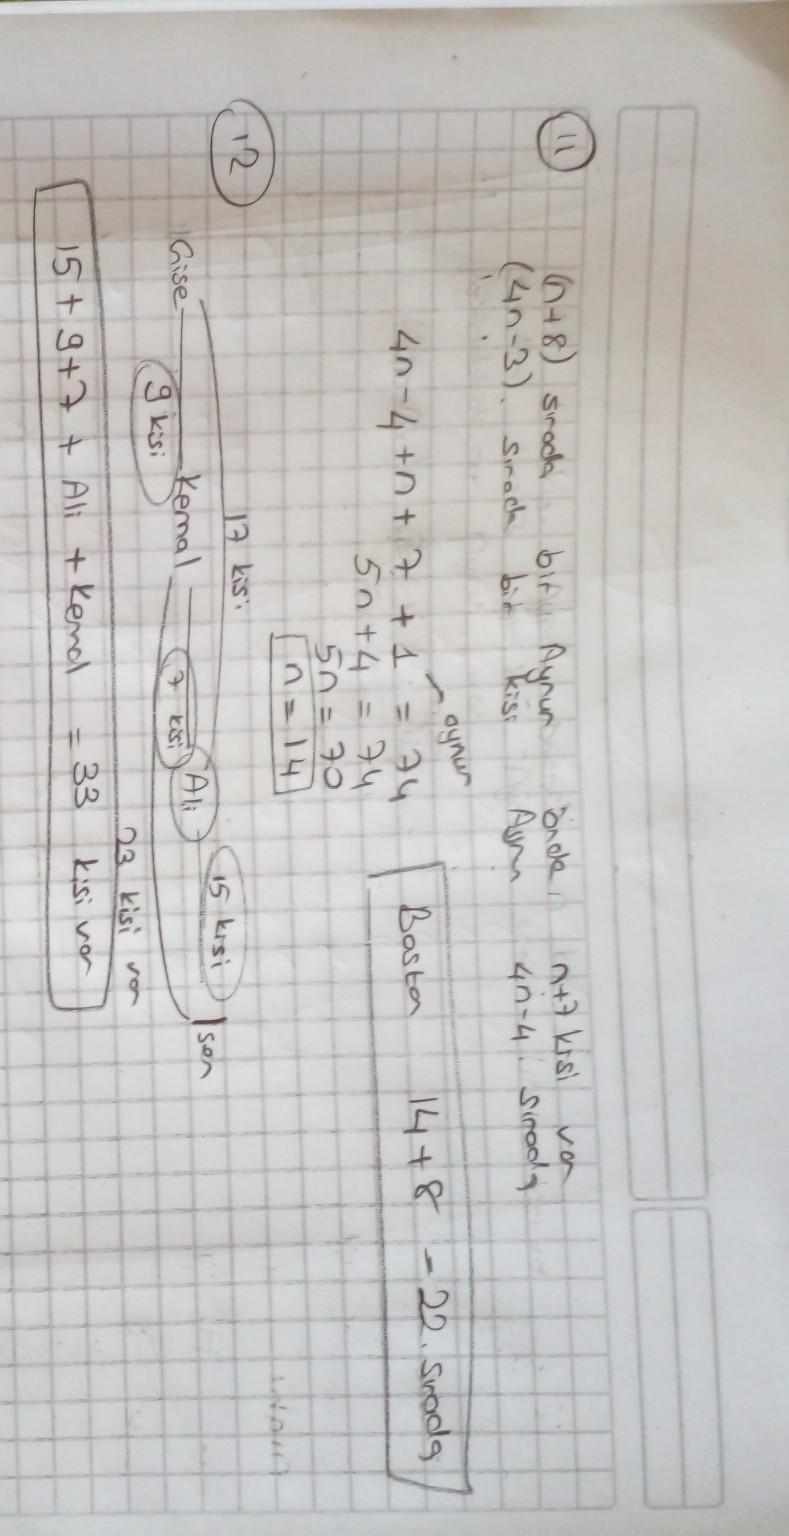 11
(n+8) sırada bir Aynur önde n+7 kişi var
(4n-3). sırada bir kişi Aynur 4n-4. sırada
4n-4+n+7+1 = 74
aynur
5n+4 = 74
5n = 70
n = 14
Bastan 14+8 - 22. sırada
12
17 kişi
Gise Kemal 7 kişi Ali 15 kişi son
9 kişi
23 kişi var
15+9+7 + Ali + Kemal = 33 kişi var